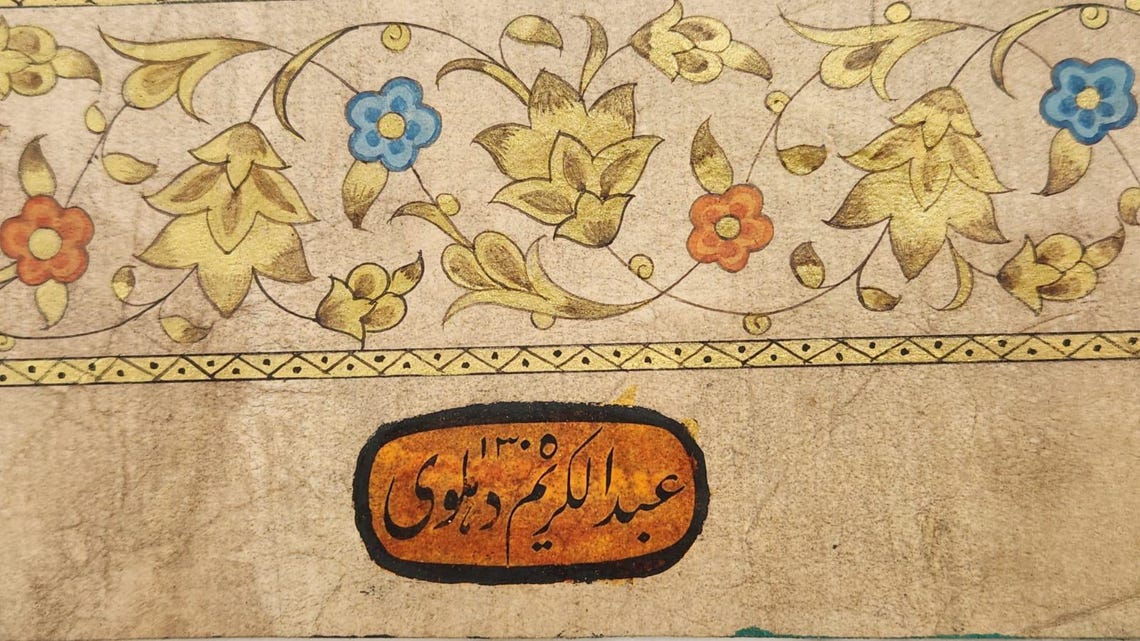 عبدالکریم دہلوی ۱۳۰۵